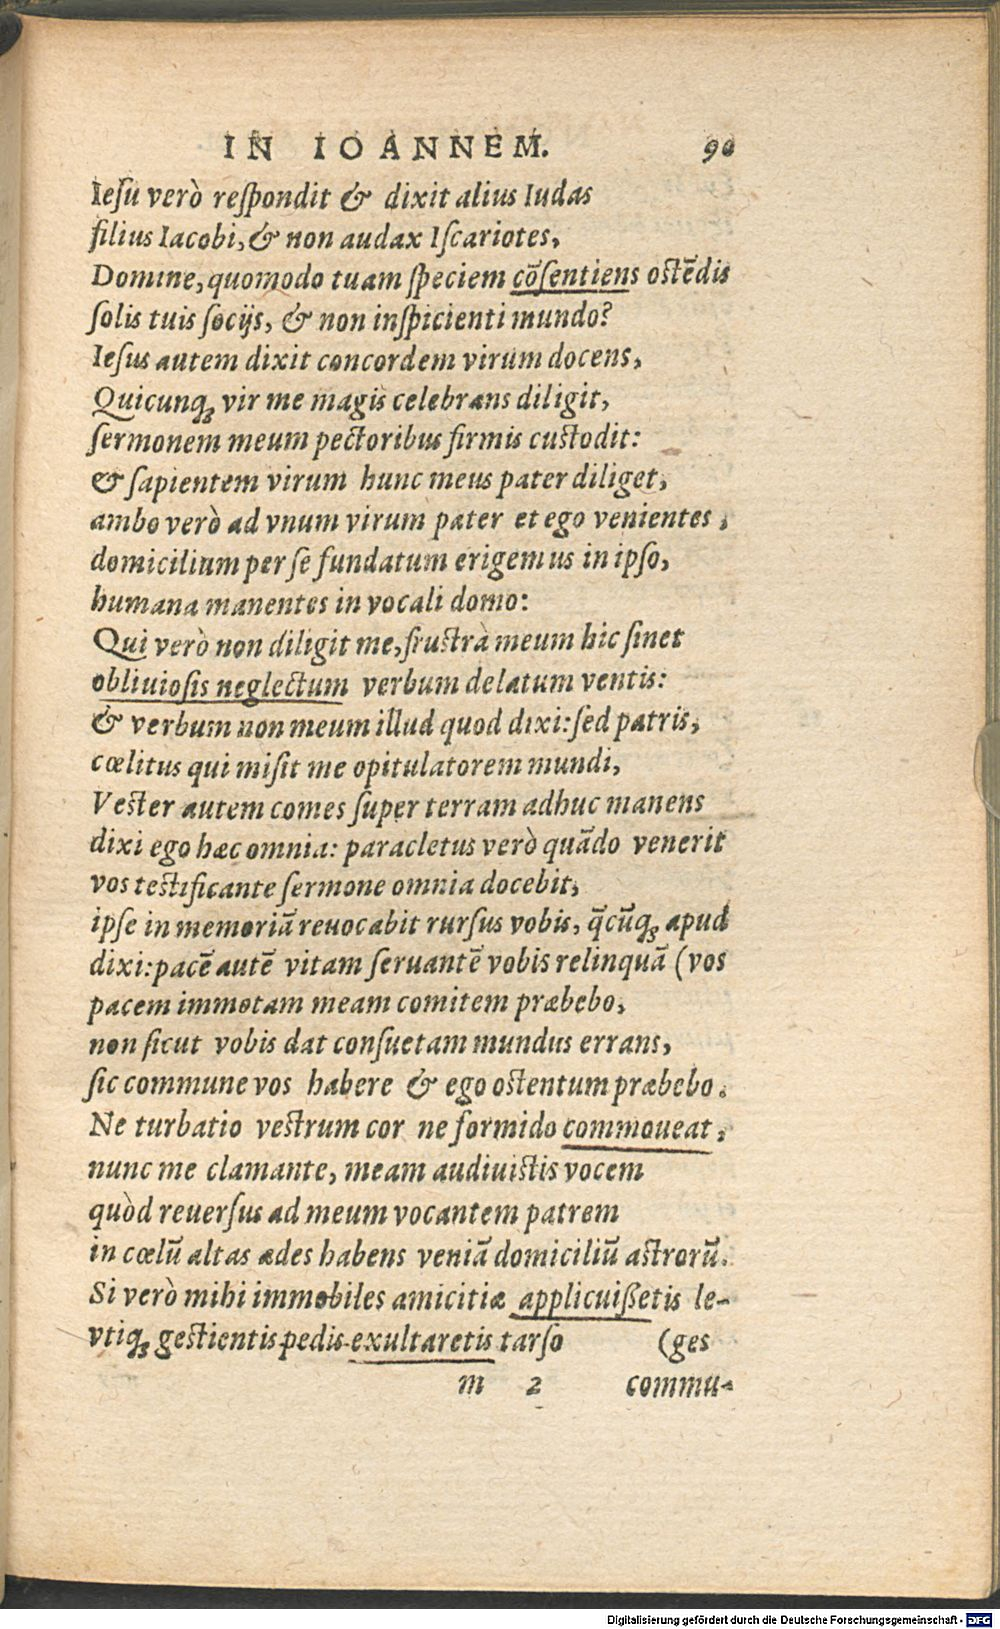 IN IOANNEM. 90
Iesu verò reſpondit & dixit alius Iudas
filius Iacobi, & non audax Iſcariotes,
Domine, quomodo tuam ſpeciem cõſentiens oſtẽdis
ſolis tuis ſocijs, & non inſpicienti mundo?
Ieſus autem dixit concordem virum docens,
Quicunqꝫ vir me magis celebrans diligit,
ſermonem meum pectoribus firmis cuſtodit:
& ſapientem virum hunc meus pater diliget,
ambo verò ad vnum virum pater et ego venientes,
domicilium per ſe fundatum erigemus in ipſo,
humana manentes in vocali domo:
Qui verò non diligit me, fruſtrà meum hic ſinet
obliuioſis neglectum verbum delatum ventis:
& verbum non meum illud quod dixi: ſed patris,
cœlitus qui miſit me opitulatorem mundi,
Veſter autem comes ſuper terram adhuc manens
dixi ego hæc omnia: paracletus verò quãdo venerit
vos teſtificante ſermone omnia docebit,
ipſe in memoriã reuocabit rurſus vobis, q̃cũqꝫ apud
dixi: pacẽ autẽ vitam ſeruantẽ vobis relinquã (vos
pacem immotam meam comitem præbebo,
non ſicut vobis dat conſuetam mundus errans,
ſic commune vos habere & ego oſtentum præbebo.
Ne turbatio veſtrum cor ne formido commoueat,
nunc me clamante, meam audiuiſtis vocem
quòd reuerſus ad meum vocantem patrem
in cœlũ altas ædes habens veniã domiciliũ aſtrorũ.
Si verò mihi immobiles amicitiæ applicuißetis le-
vtiqꝫ geſtientis pedis exultaretis tarſo (ges
m 2 commu-
Digitalisierung gefördert durch die Deutsche Forschungsgemeinschaft - DFG